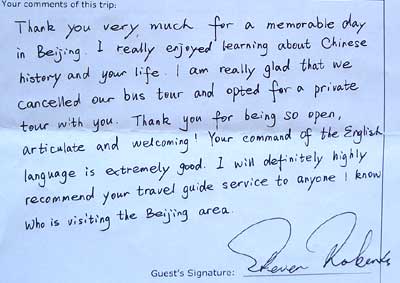 Your comments of this trip:
Thank you very much for a memorable day
in Beijing. I really enjoyed learning about Chinese
history and your life. I am really glad that we
cancelled our bus tour and opted for a private
tour with you. Thank you for being so open,
articulate and welcoming! Your command of the English
language is extremely good. I will definitely highly
recommend your travel guide service to anyone I know
who is visiting the Beijing area.
Guest's Signature: Steven